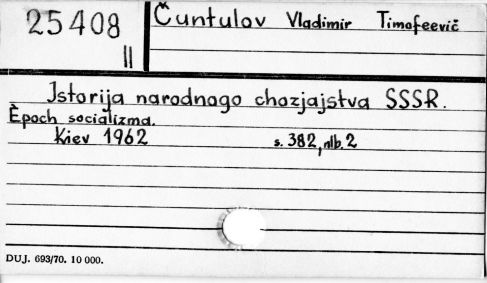 25408
II
Čuntulov Vladimir Timofeevič
Istorija narodnogo chozjajstva SSSR.
Èpoch socializma.
Kiev 1962 s. 382, nlb. 2
DUJ. 693/70. 10 000.